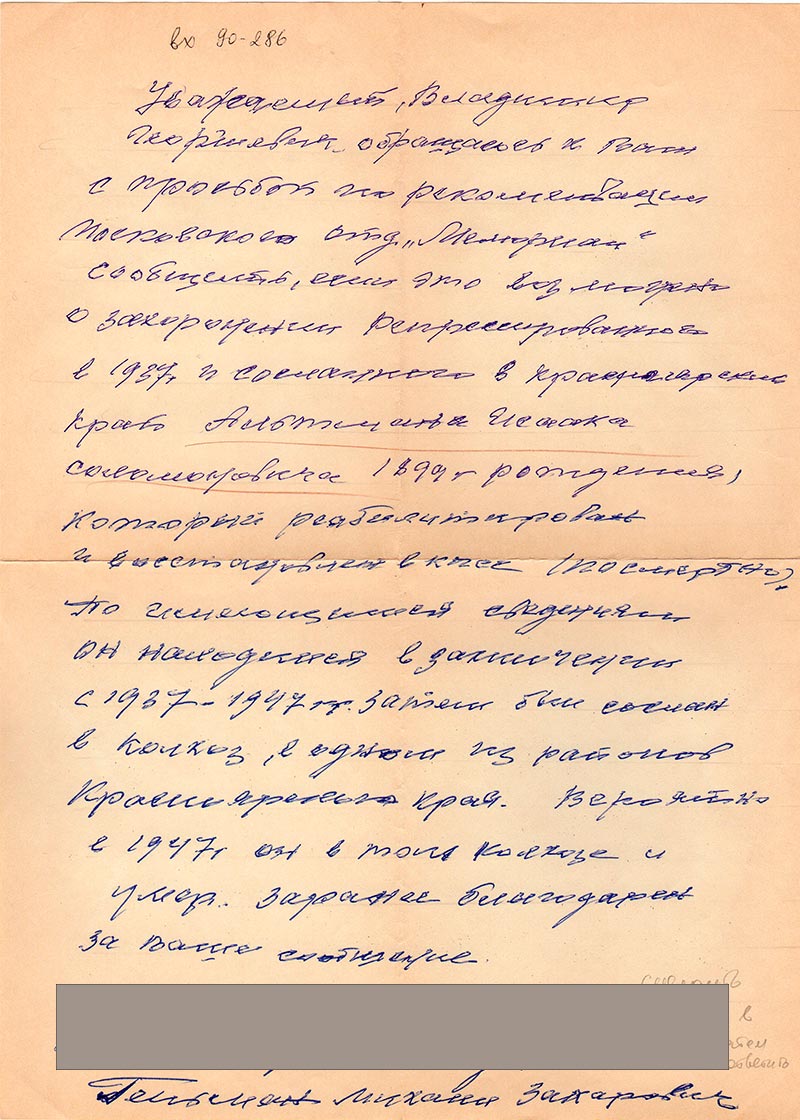 вх 90-286
Уважаемый, Владимир
Георгиевич, обращаюсь к Вам
с просьбой по рекомендации
Московского отд. „Мемориал"
сообщить, если это возможно
о захоронении репрессированного
в 1937г и сосланного в Красноярский
край Альтмана Исаака
Соломоновича 1899г рождения,
который реабилитирован
и восстановлен в кпсс (посмертно).
По имеющимся сведениям
он находился в заключении
с 1937-1947 гг. Затем был сослан
в колхоз, в одном из районов
Красноярского края. Вероятно
в 1947г он в том колхозе и
умер. Заранее благодарен
за Ваше сообщение.
в
ответить
Гельман Михаил Захарович